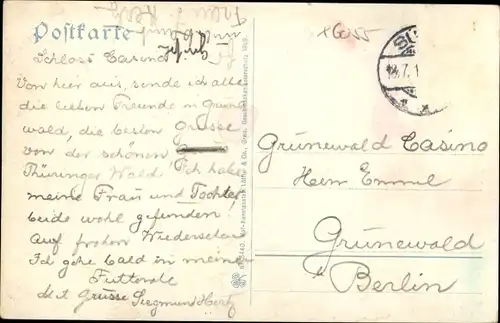 Postkarte
Schloss Casino
Von hier aus, sende ich alle
die lieben Freunde in Grune
wald, die besten Grüsse
von der schönen
Thüringer Wald. Ich habe
meine Frau und Tochter
beide wohl gefunden
Auf frohen Wiedersehen
Ich gehe bald in meine
Mit Grüsse Siegmund Hertz
Grünewald Casino
Herrn Emmel
Grünewald
b/ Berlin